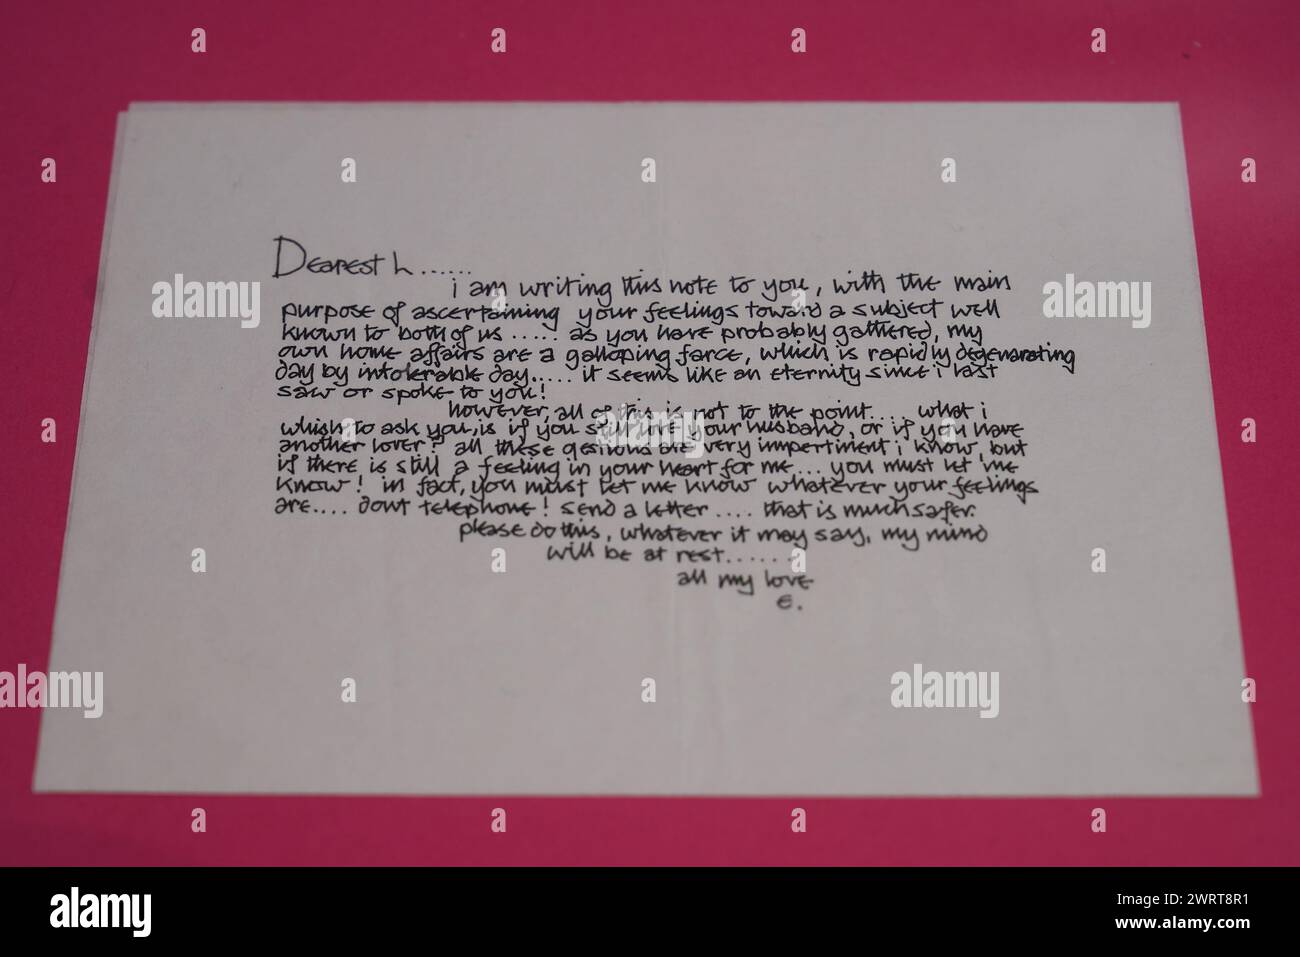 Dearest L......
i am writing this note to you, with the main
purpose of ascertaining your feelings toward a subject well
known to both of us ..... as you have probably gathered, my
own home affairs are a galloping farce, which is rapidly degenarating
day by intolerable day..... it seems like an eternity since i last
saw or spoke to you!
however, all of this is not to the point.... what i
whish to ask you, is if you still love your husband, or if you have
another lover? all these qestions are very impertinent i know, but
if there is still a feeling in your heart for me... you must let me
know! in fact, you must let me know whatever your feelings
are.... dont telephone! send a letter .... that is much safer.
please do this, whatever it may say, my mind
will be at rest......
all my love
e.
alamy
Image ID: 2WRT8R1
www.alamy.com